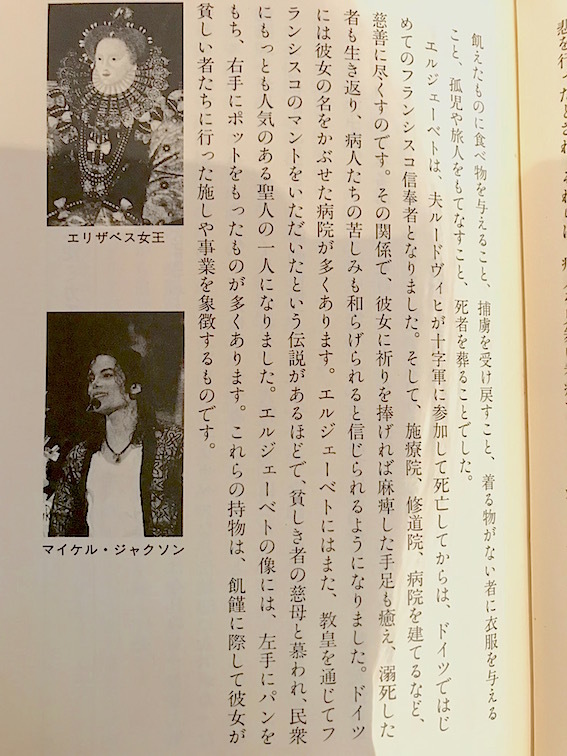 悲を行ったとされ、それらは、病
飢えたものに食べ物を与えること、捕虜を受け戻すこと、着る物がない者に衣服を与える
こと、孤児や旅人をもてなすこと、死者を葬ることでした。
エルジェーベトは、夫ルードヴィヒが十字軍に参加して死亡してからは、ドイツではじ
めてのフランシスコ信奉者となりました。そして、施療院、修道院、病院を建てるなど、
慈善に尽くすのです。その関係で、彼女に祈りを捧げれば麻痺した手足も癒え、溺死した
者も生き返り、病人たちの苦しみも和らげられると信じられるようになりました。ドイツ
には彼女の名をかぶせた病院が多くあります。エルジェーベトにはまた、教皇を通じてフ
ランシスコのマントをいただいたという伝説があるほどで、貧しき者の慈母と慕われ、民衆
にもっとも人気のある聖人の一人になりました。エルジェーベトの像には、左手にパンを
もち、右手にポットをもったものが多くあります。これらの持物は、飢饉に際して彼女が
貧しい者たちに行った施しや事業を象徴するものです。
エリザベス女王
マイケル・ジャクソン